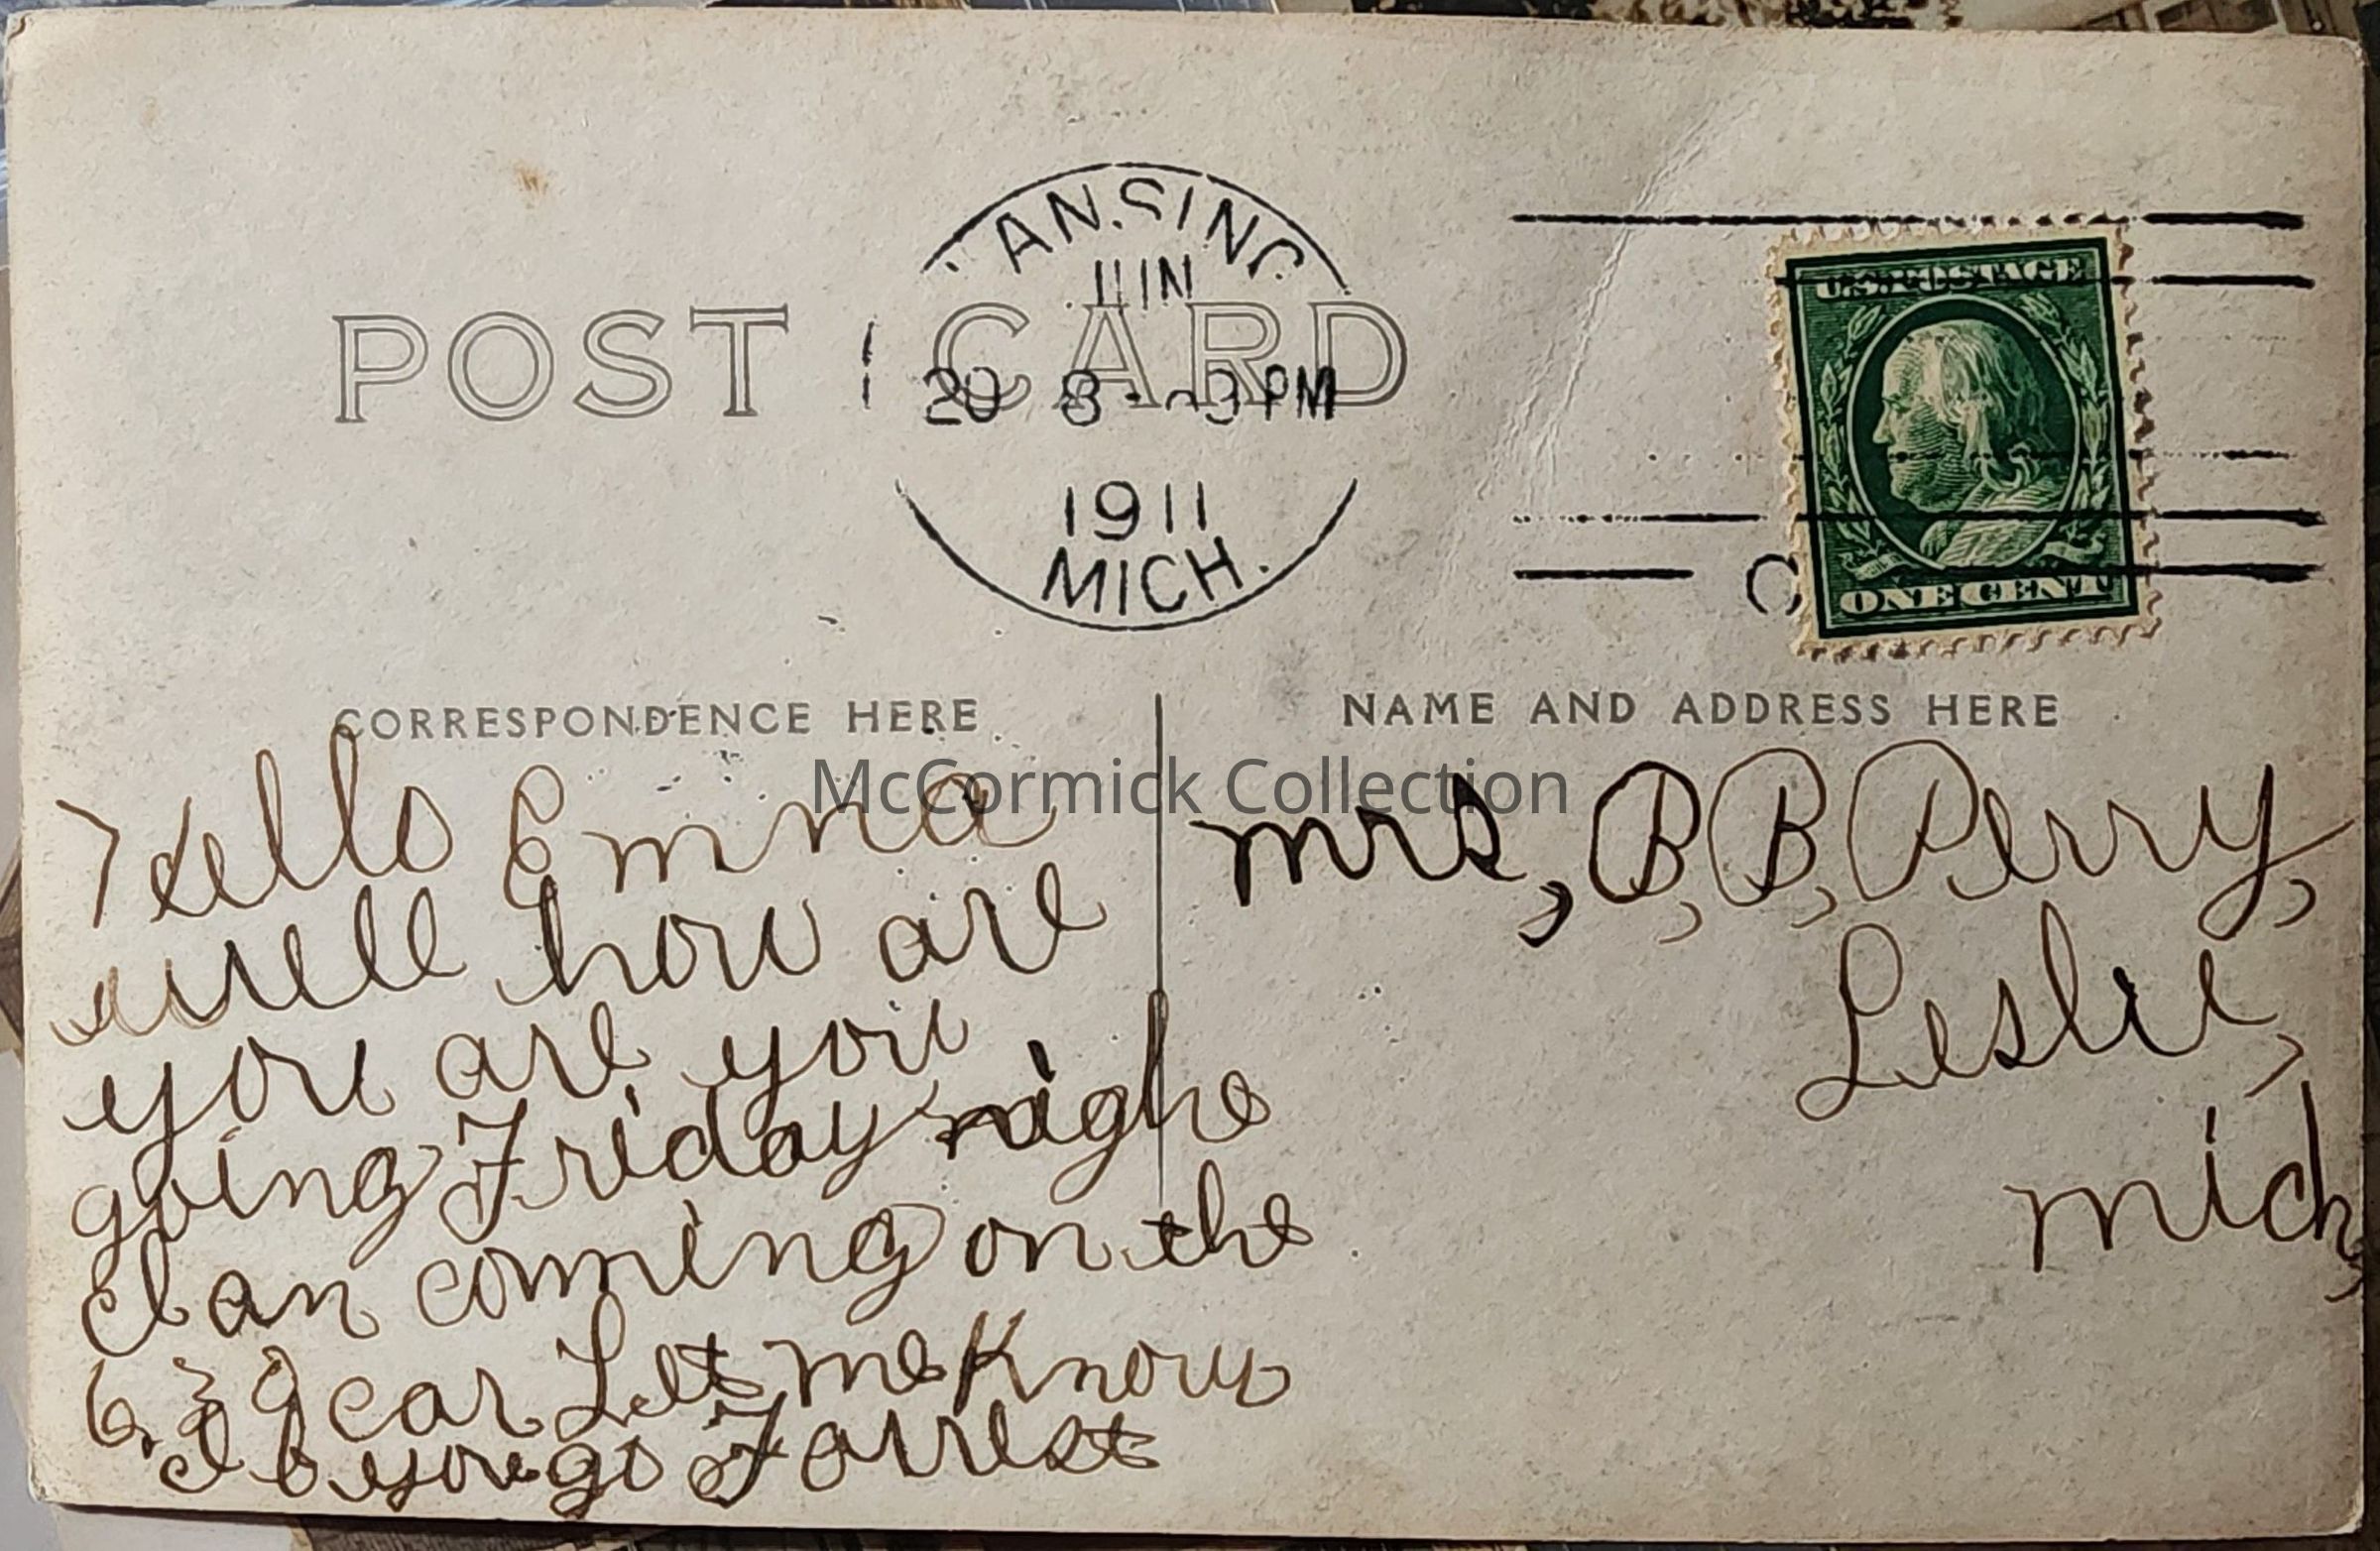 LANSING
JUN
POST CARD
20 8 - PM
1911
MICH.
U.S. POSTAGE
ONE CENT
CORRESPONDENCE HERE
NAME AND ADDRESS HERE
McCormick Collection
Hello Emma
well how are
you are you
going Friday nighe
I an coming on the
6.30 car Let me Know
If you go Forrest
Mrs, B, B, Perry,
Leslie,
Mich,